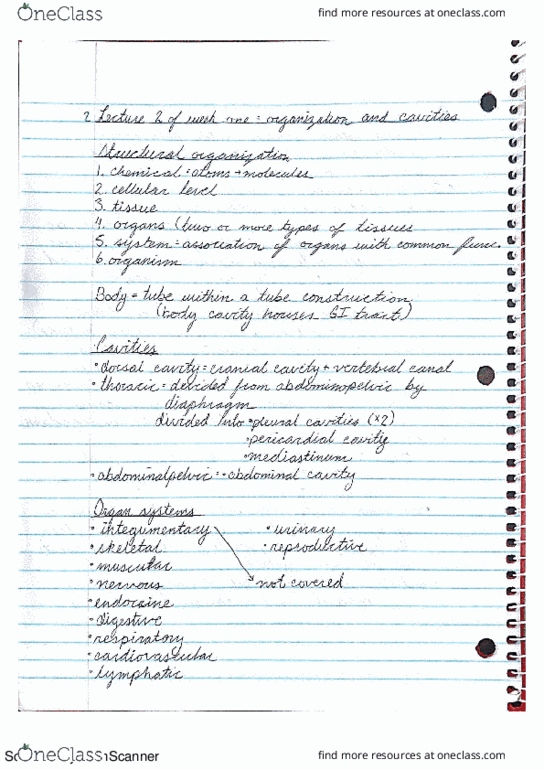 OneClass find more resources at oneclass.com
2 Lecture 2 of week one: organization and cavities
Structural organization
1. chemical: atoms + molecules
2. cellular level
3. tissue
4. organs (two or more types of tissues
5. system: association of organs with common func.
6. organism
Body = tube within a tube construction
(body cavity houses GI tract)
Cavities
• dorsal cavity: cranial cavity + vertebral canal
• thoracic: divided from abdominopelvic by
diaphragm
divided into • pleural cavities (x2)
• pericardial cavity
• mediastinum
• abdominalpelvic: • abdominal cavity
Organ systems
• integumentary • urinary
• skeletal • reproductive
• muscular
• nervous not covered
• endocrine
• digestive
• respiratory
• cardiovascular
• lymphatic
OneClass Scanner find more resources at oneclass.com